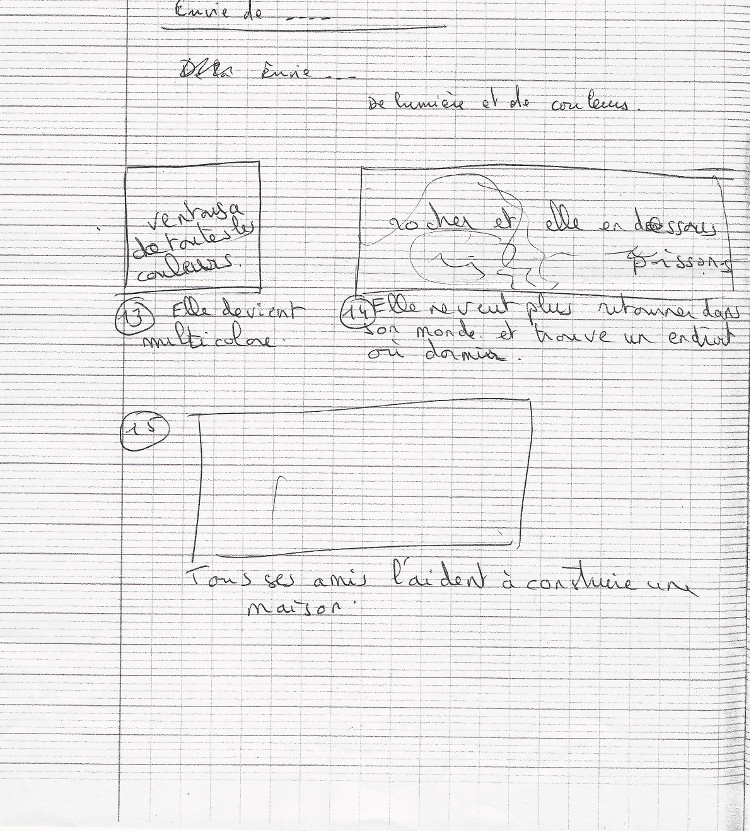 Envie de ----
Envie ---
De lumière et de couleurs.
ventousa
de toutes les
couleurs.
rocher et elle en dessous
poissons
13 Elle devient
multicolore.
14 Elle ne veut plus retourner dans
son monde et trouve un endroit
où dormir.
15
Tous ses amis l'aident à construire une
maison.